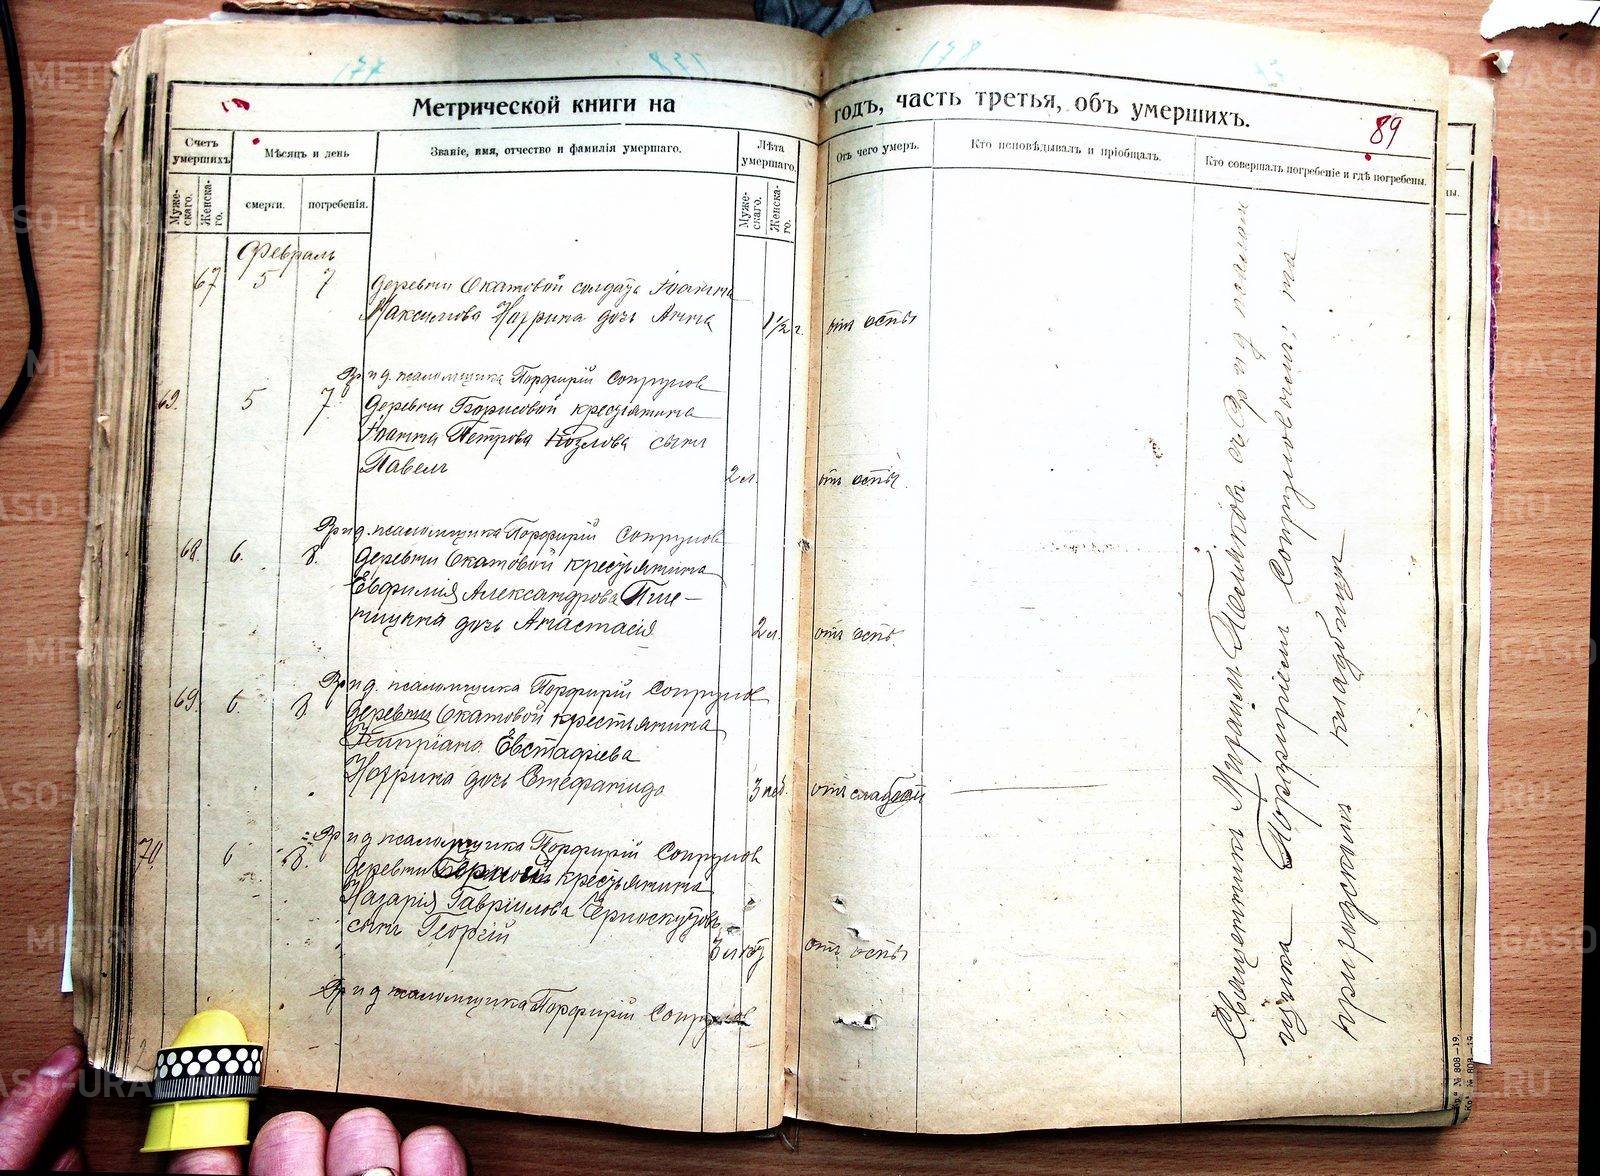 177
178
Метрической книги на
годъ, часть третья, объ умершихъ.
89
Счетъ умершихъ
Мѣсяцъ и день
Званіе, имя, отчество и фамилія умершаго.
Лѣта умершаго.
Отъ чего умеръ.
Кто исповѣдывалъ и пріобщалъ.
Кто совершалъ погребеніе и гдѣ погребены.
Мужескаго.
Женскаго.
смерти.
погребенія.
Мужескаго.
Женскаго.
Февраль
67 5 7
деревни Окатовой солдата Іоанна
Максимова дочь Анна
1 1/2 г. отъ оспы
Вр и д. псаломщика Порфирій Сопрунов
5 7
деревни Борисовой крестьянина
Іоанна Петрова Козлова сынъ
Павелъ
2 л. отъ оспы.
Вр и д. псаломщика Порфирій Сопрунов
68. 6. 8.
деревни Окатовой крестьянина
Александрова
дочь Анастасія
2 л. отъ оспы.
Вр и д. псаломщика Порфирій Сопрунов
69. 6. 8.
деревни Окатовой крестьянина
Кипріана Евстафіева
дочь Стефанида
3 нед. отъ слабости
Вр и д псаломщика Порфирій Сопрунов
70 6 8.
деревни крестьянина
Назарія Гавріилова Черноскутовъ
сынъ Георгій
отъ оспы
Вр и д псаломщика Порфирій Сопрунов
Священникъ Михаилъ съ Вр и д псалом
щика Порфиріемъ Сопруновымъ, на
приходскомъ кладбище
№ 808—19.